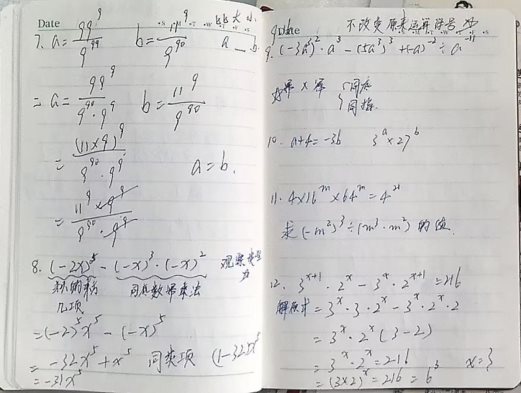 Date
7. a = 99⁹/9⁹⁹ b = 11⁹/9⁹⁰ 比大小 a __ b
= a = 99⁹/(9⁹⁰·9⁹) b = 11⁹/9⁹⁰
= (11×9)⁹/(9⁹⁰·9⁹) a = b.
= 11⁹×9⁹/(9⁹⁰·9⁹)
8. (-2x)⁵ - (-x)³·(-x)² 观察类型
积的乘方 同底数幂乘法
几项
= (-2)⁵x⁵ - (-x)⁵
= -32x⁵ + x⁵ 同类项 (1-32)x⁵
= -31x⁵
Date 不改变原来运算符号
9. (-3a⁴)²·a³ - (5a³)³ + (-a)⁻²÷a⁻¹¹
幂×幂 {同底 同指
10. a+4=-3b 3ᵃ×27ᵇ
11. 4×16ᵐ×64ᵐ=4²¹
求(-m²)³÷(m³·m²)的值
12. 3ˣ⁺¹·2ˣ - 3ˣ·2ˣ⁺¹ = 216
解原式 = 3ˣ·3·2ˣ - 3ˣ·2ˣ·2
= 3ˣ·2ˣ(3-2)
= 3ˣ·2ˣ = 216
= (3×2)ˣ = 216 = 6³ x=3